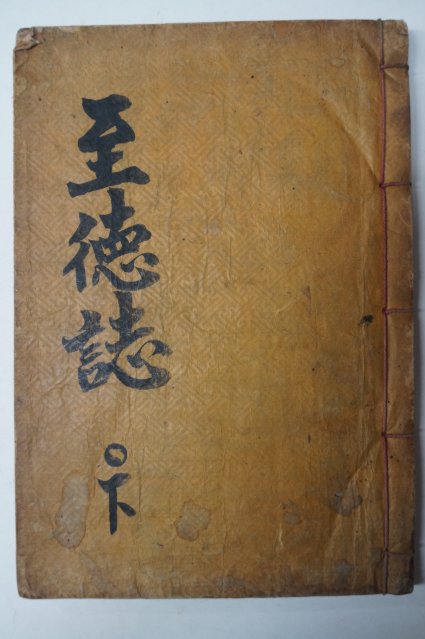 至德誌
○下